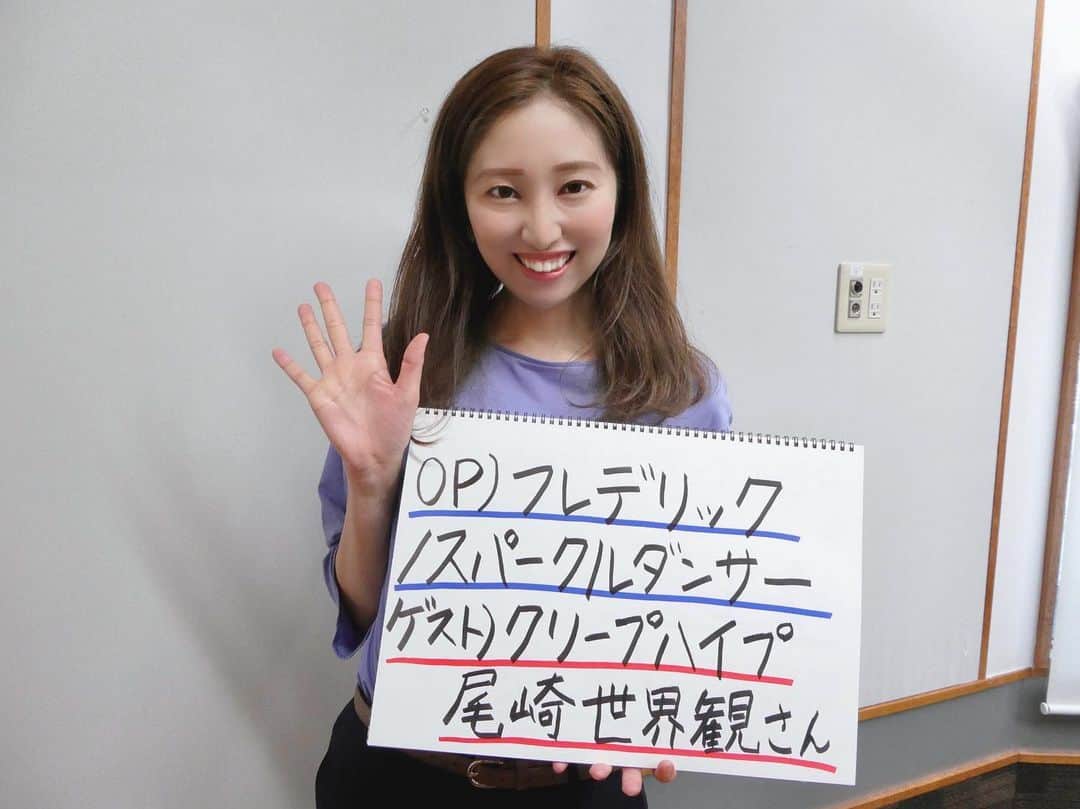 OP)フレデリック
/スパークルダンサー
ゲスト)クリープハイプ
尾崎世界観さん